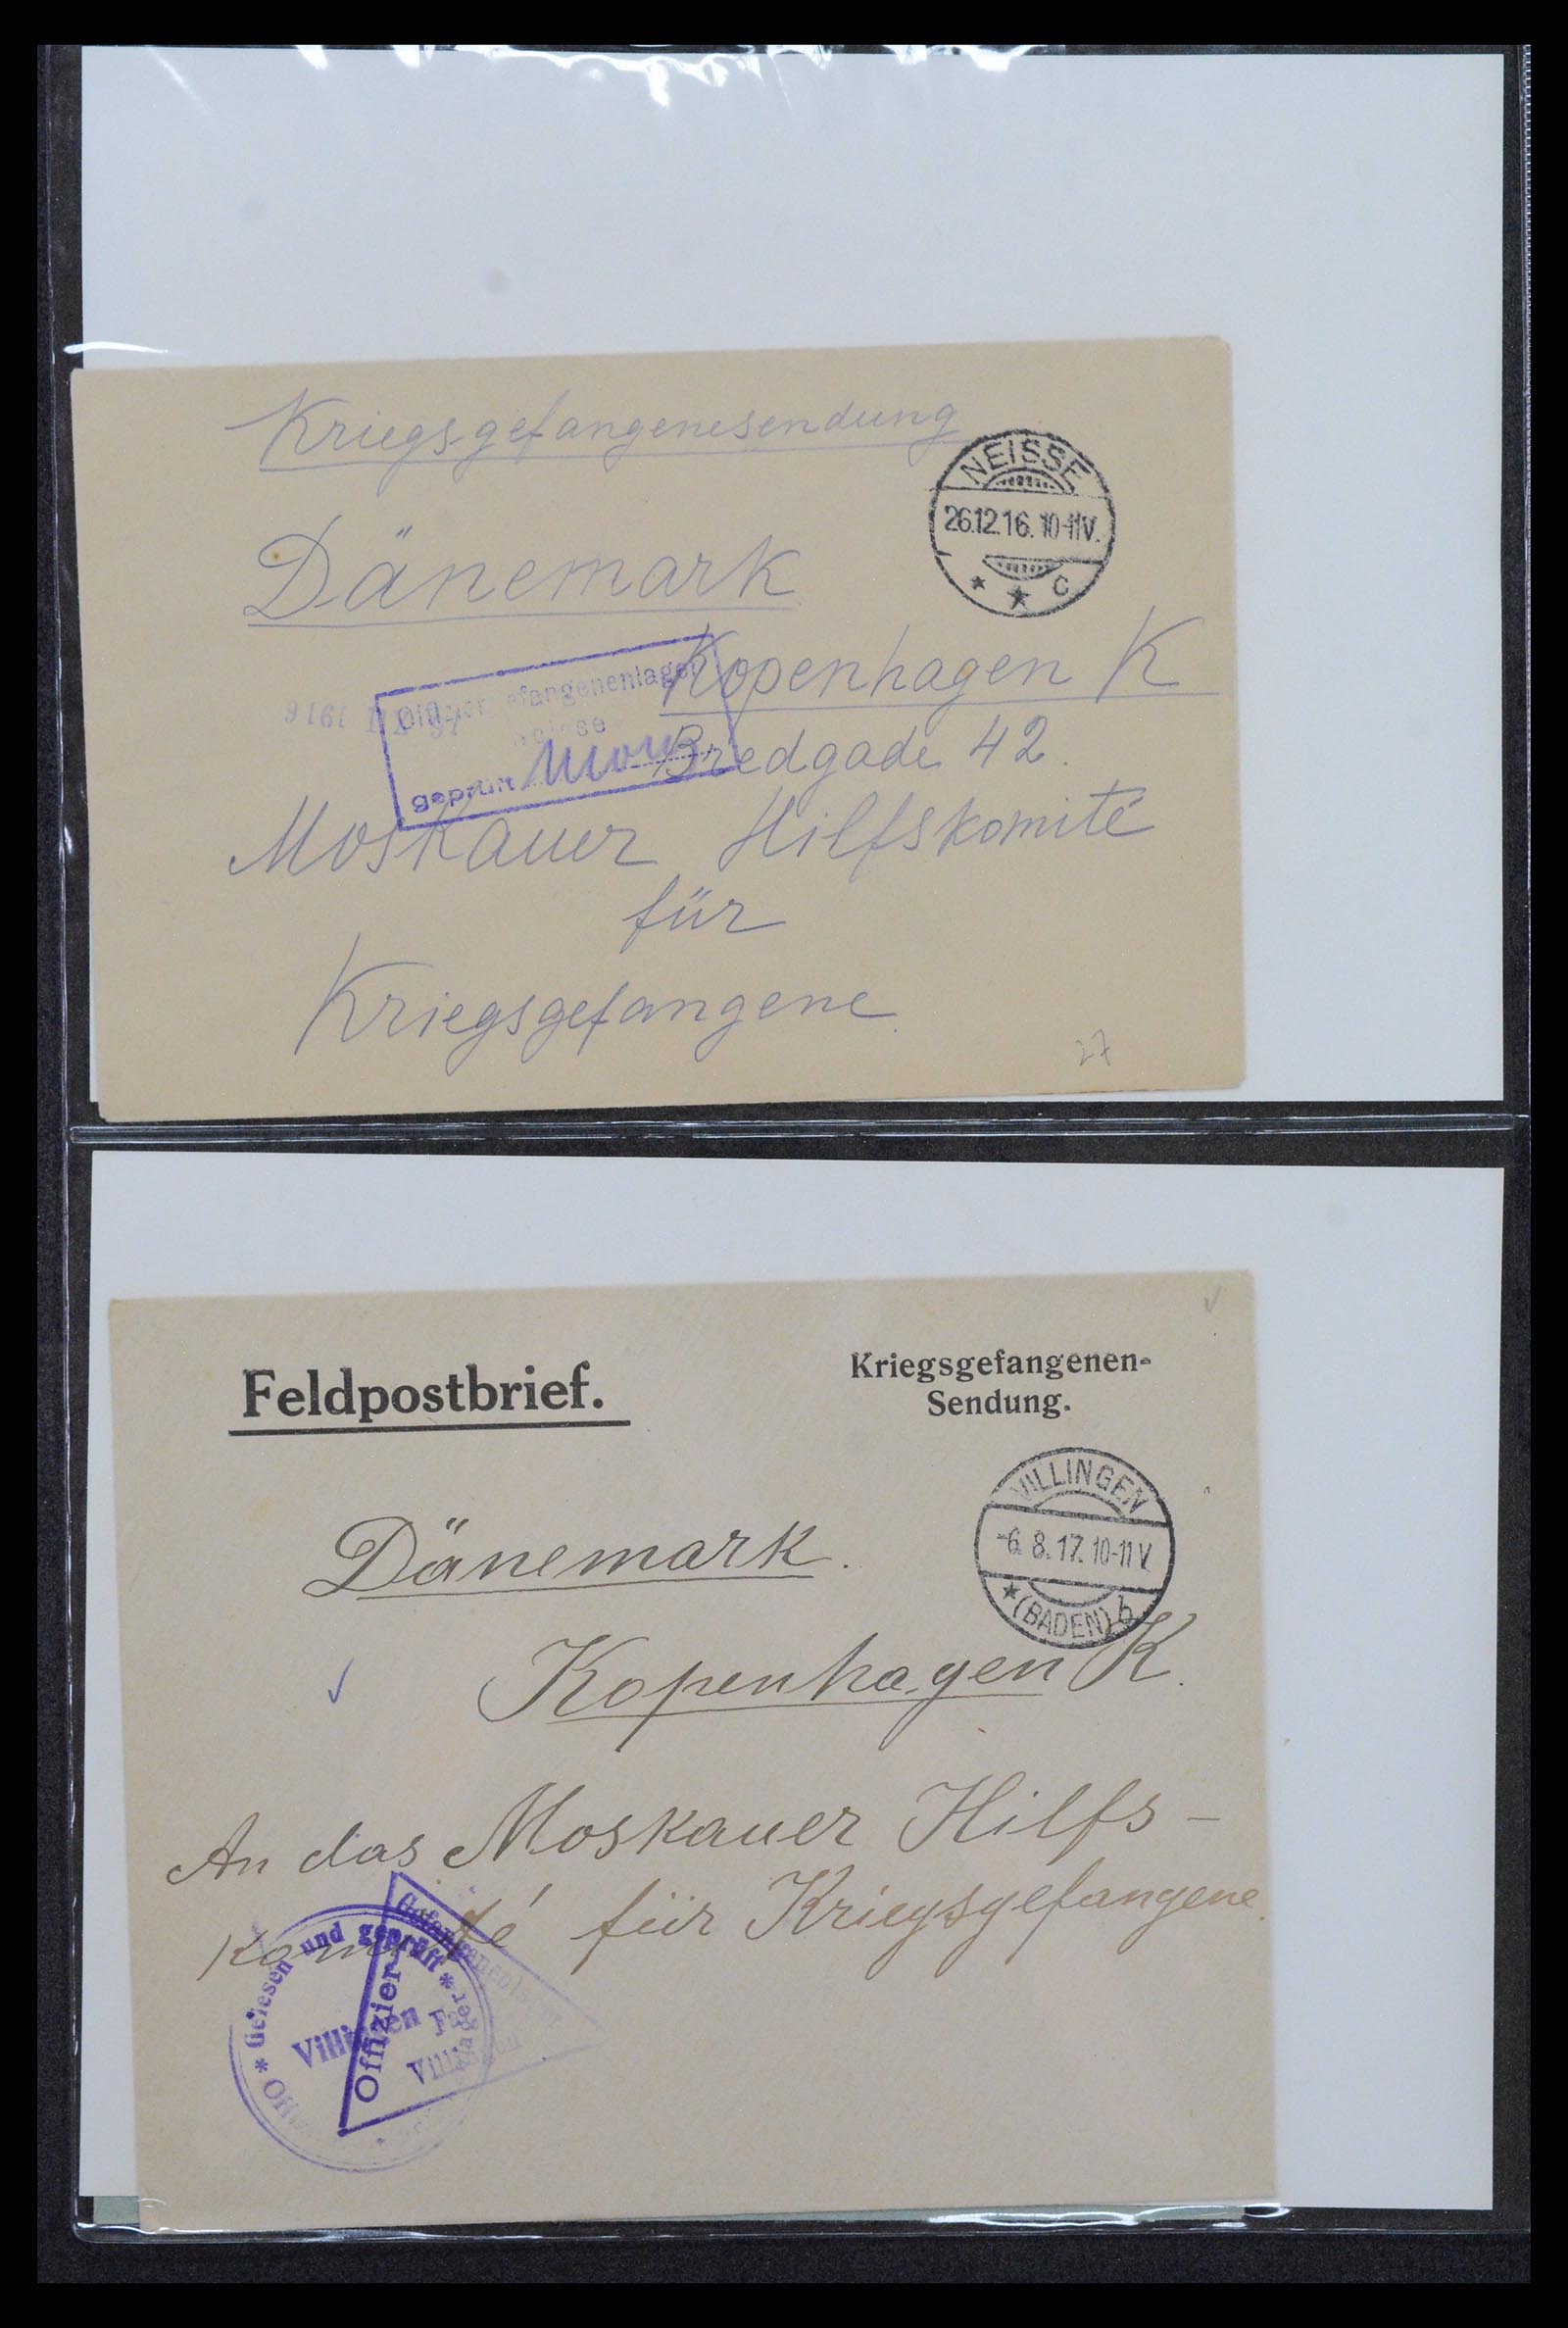 Kriegsgefangenesendung
NEISSE
26.12.16. 10-11V.
* * c
Dänemark
Kopenhagen K
Offizier gefangenenlager
1916
Neisse
Bredgade 42.
geprüft
Moskauer Hilfskomité
für
Kriegsgefangene
27
Feldpostbrief.
Kriegsgefangenen-
Sendung.
VILLINGEN
-6.8.17. 10-11V.
* (BADEN) b
Dänemark.
Kopenhagen K.
An das Moskauer Hilfs-
komité für Kriegsgefangene.
* Gelesen und geprüft *
Villingen
Offizier-
Gefangenenlager
Villingen